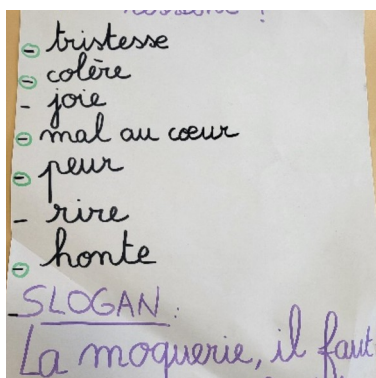 - tristesse
- colère
- joie
- mal au cœur
- peur
- rire
- honte
- SLOGAN :
La moquerie, il faut